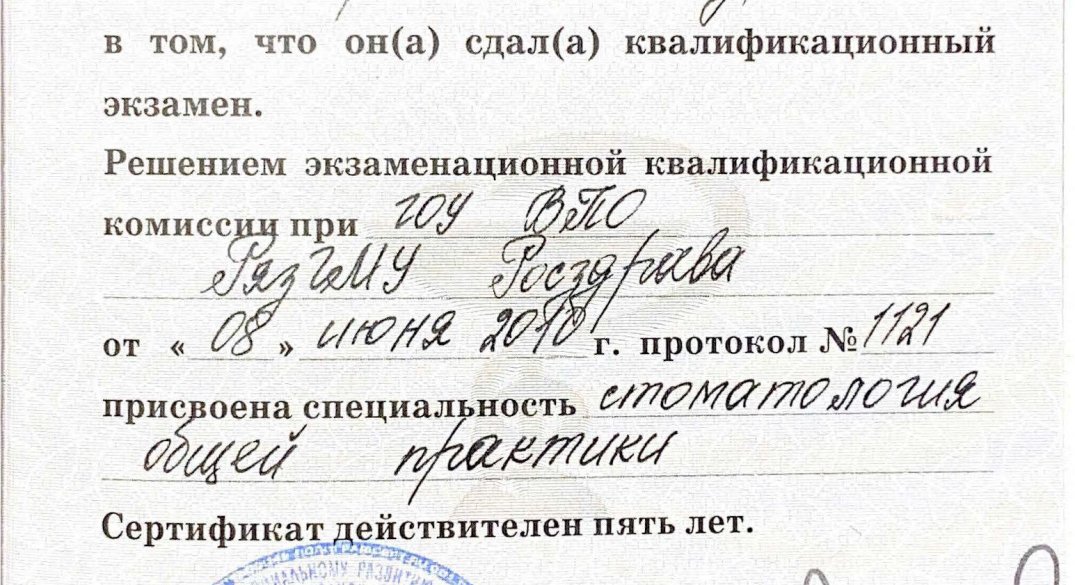 в том, что он(а) сдал(а) квалификационный
экзамен.
Решением экзаменационной квалификационной
комиссии при ГОУ ВПО
РязГМУ Росздрава
от «08» июня 2010 г. протокол №1121
присвоена специальность стоматология
общей практики
Сертификат действителен пять лет.